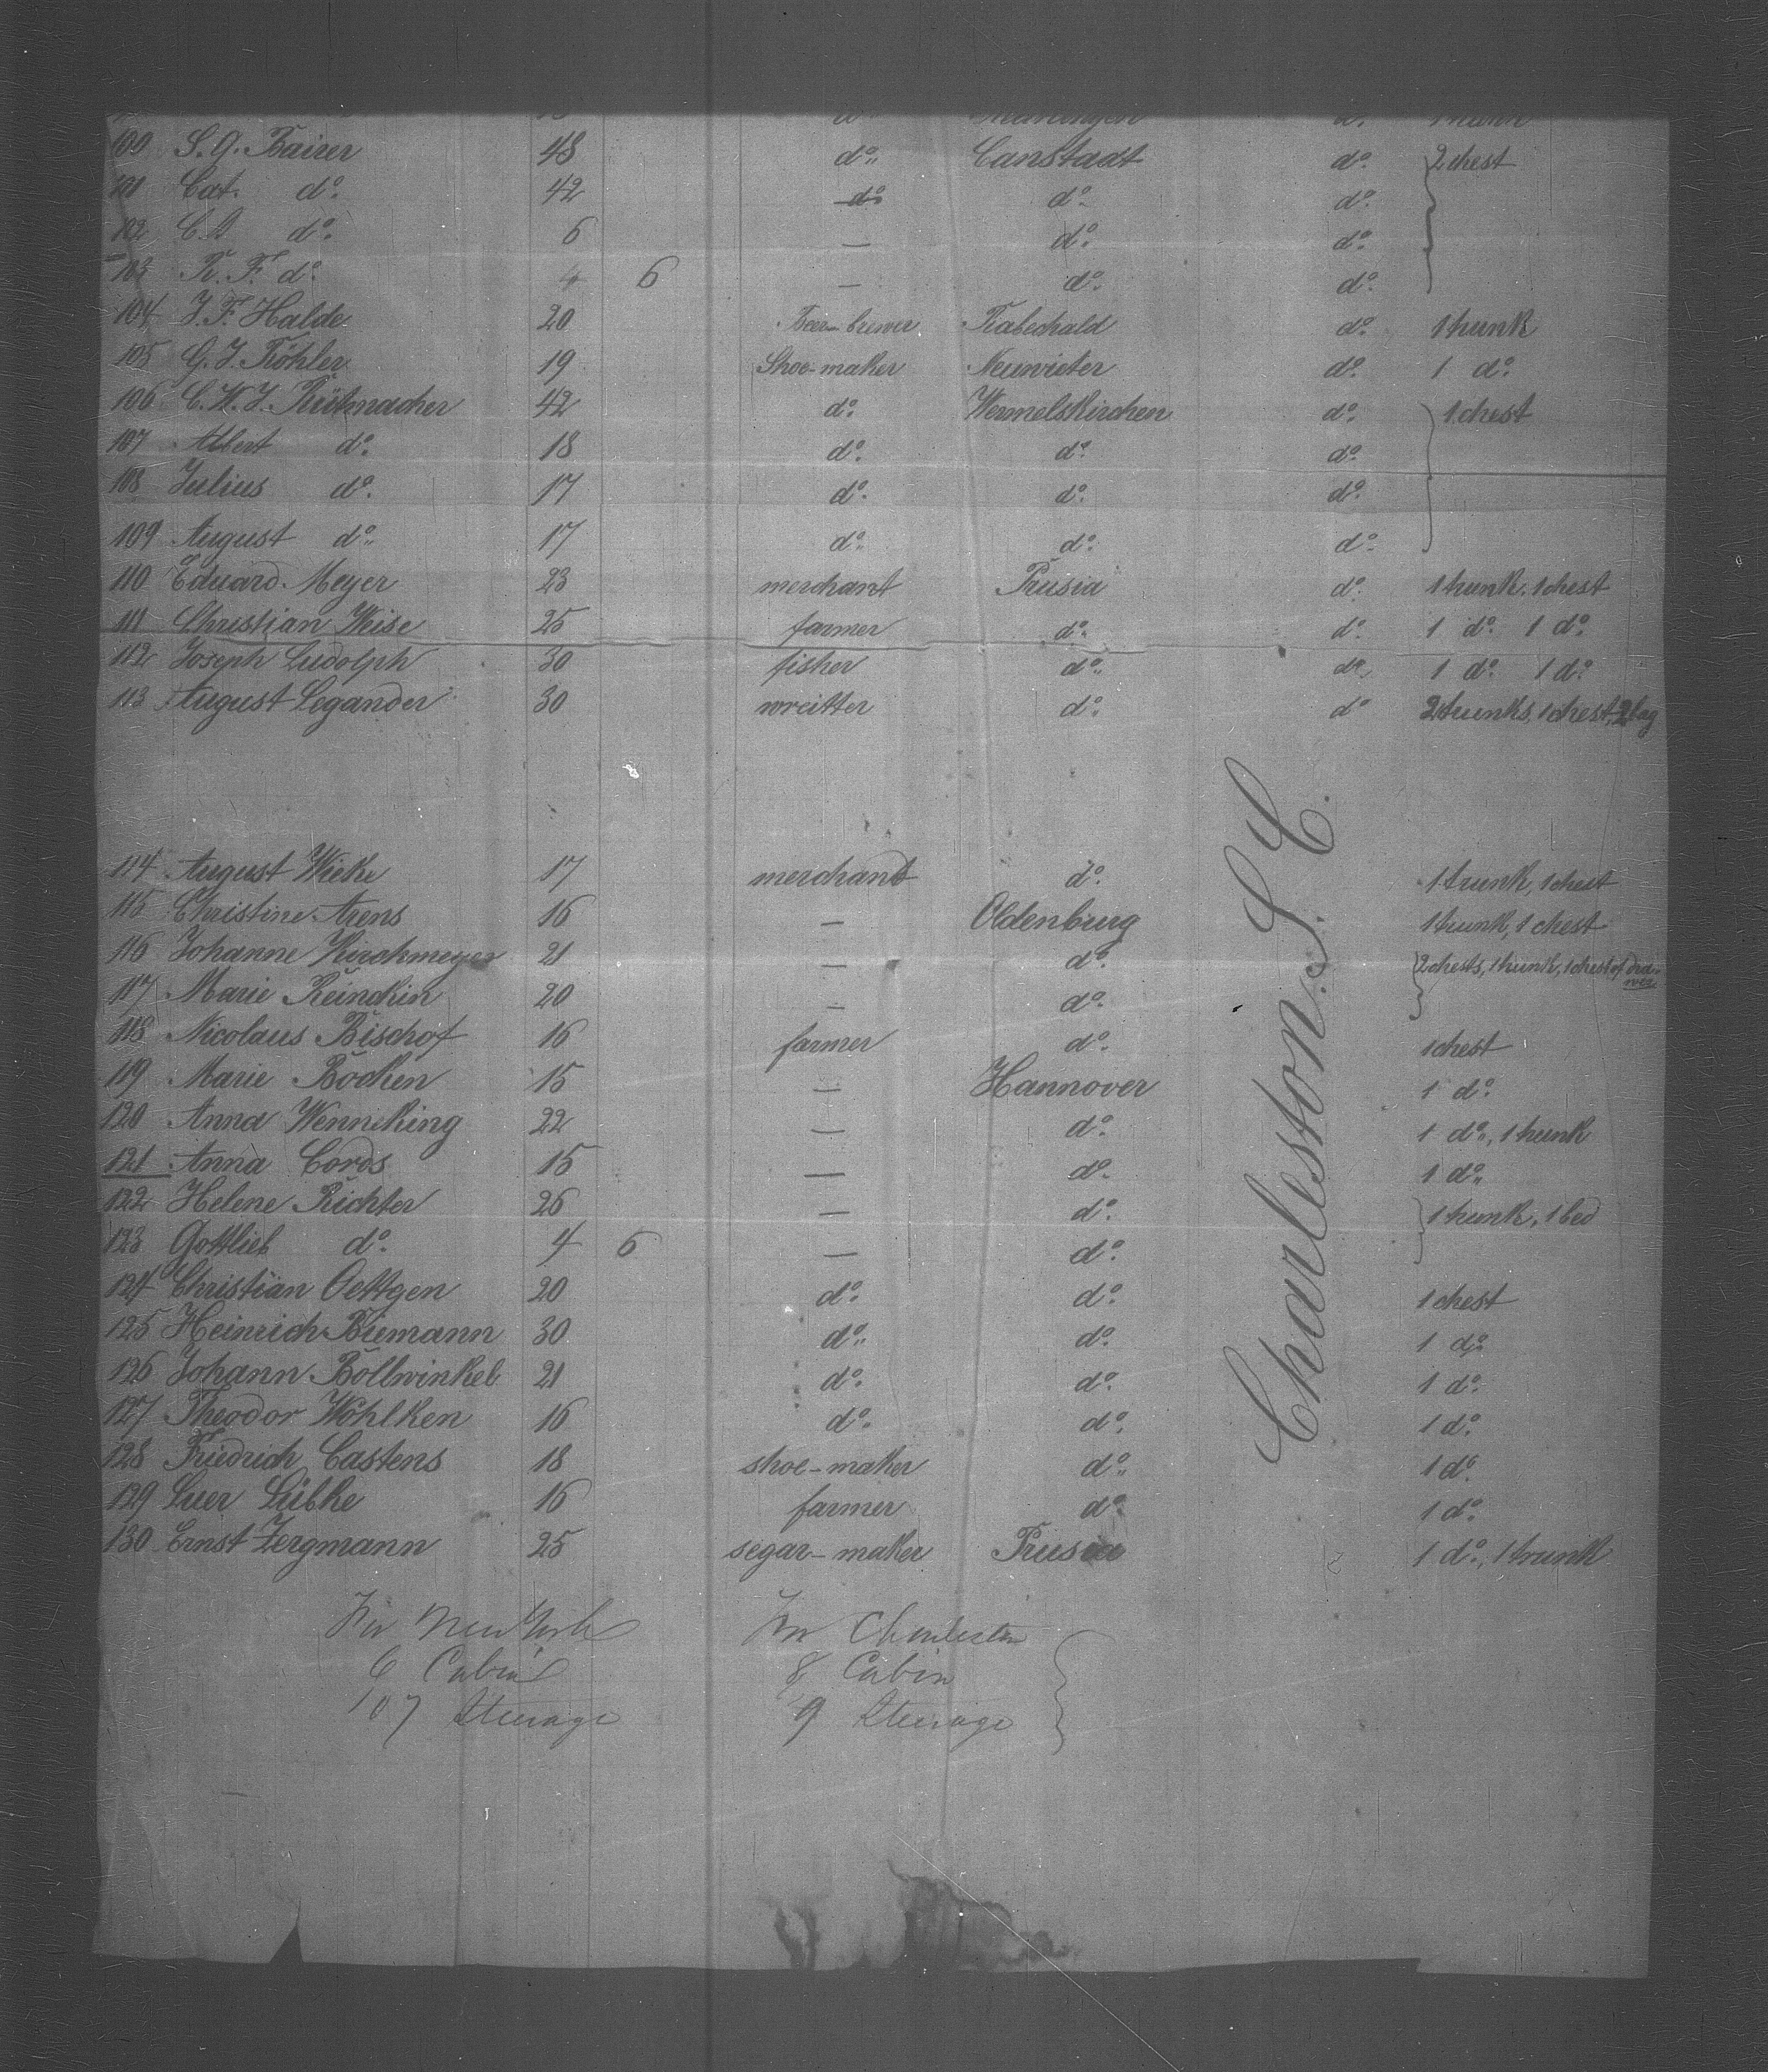 100 S. G. Bairer 48 do. Canstadt do. 2 chest
101 Cat. do. 42 do. do. do.
102 C. A do. 6 — do. do.
103 R. F. do. 4 6 — do. do.
104 J. F. Halde 20 Beer-brewer do. 1 trunk
105 G. J. Köhler 19 Shoe-maker Neuwieter do. 1 do.
106 C. W. J. 42 do. Wermelskirchen do. 1 chest
107 Albert do. 18 do. do. do.
108 Julius do. 17 do. do. do.
109 August do. 17 do. do. do.
110 Eduard Meyer 23 merchant Prusia do. 1 trunk. 1 chest
111 Christian Weise 25 farmer do. do. 1 do. 1 do.
112 Joseph Ludolph 30 fisher do. do. 1 do. 1 do.
113 August Legander 30 wreitter do. do 2 trunks, 1 chest, 2 bag
Charleston. S. C.
114 August Wieke 17 merchant do. 1 trunk, 1 chest
115 Christine Arens 16 — Oldenburg 1 trunk, 1 chest
116 Johanne Kirchmeyer 21 — do. 2 chests, 1 trunk, 1 chest of
117 Marie Reinckin 20 — do.
118 Nicolaus Bischof 16 farmer do. 1 chest
119 Marie Bocken 15 — Hannover 1 do.
120 Anna Wenneking 22 — do. 1 do., 1 trunk
121 Anna Cords 15 — do. 1 do.
122 Helene Richter 26 — do. 1 trunk, 1 bed
123 Gottlieb do. 4 6 — do.
124 Christian Oettgen 20 do. do. 1 chest
125 Heinrich Biemann 30 do. do. 1 do.
126 Johann Bollwinkel 21 do. do. 1 do.
127 Theodor Wohlken 16 do. do. 1 do.
128 Friedrich Castens 18 shoe-maker do. 1 do.
129 Luer Lübke 16 farmer do. 1 do.
130 Ernst Zergmann 25 segar-maker Prusia 1 do., 1 trunk
For New York For Charleston
6 Cabin 8 Cabin
107 Steerage 9 Steerage